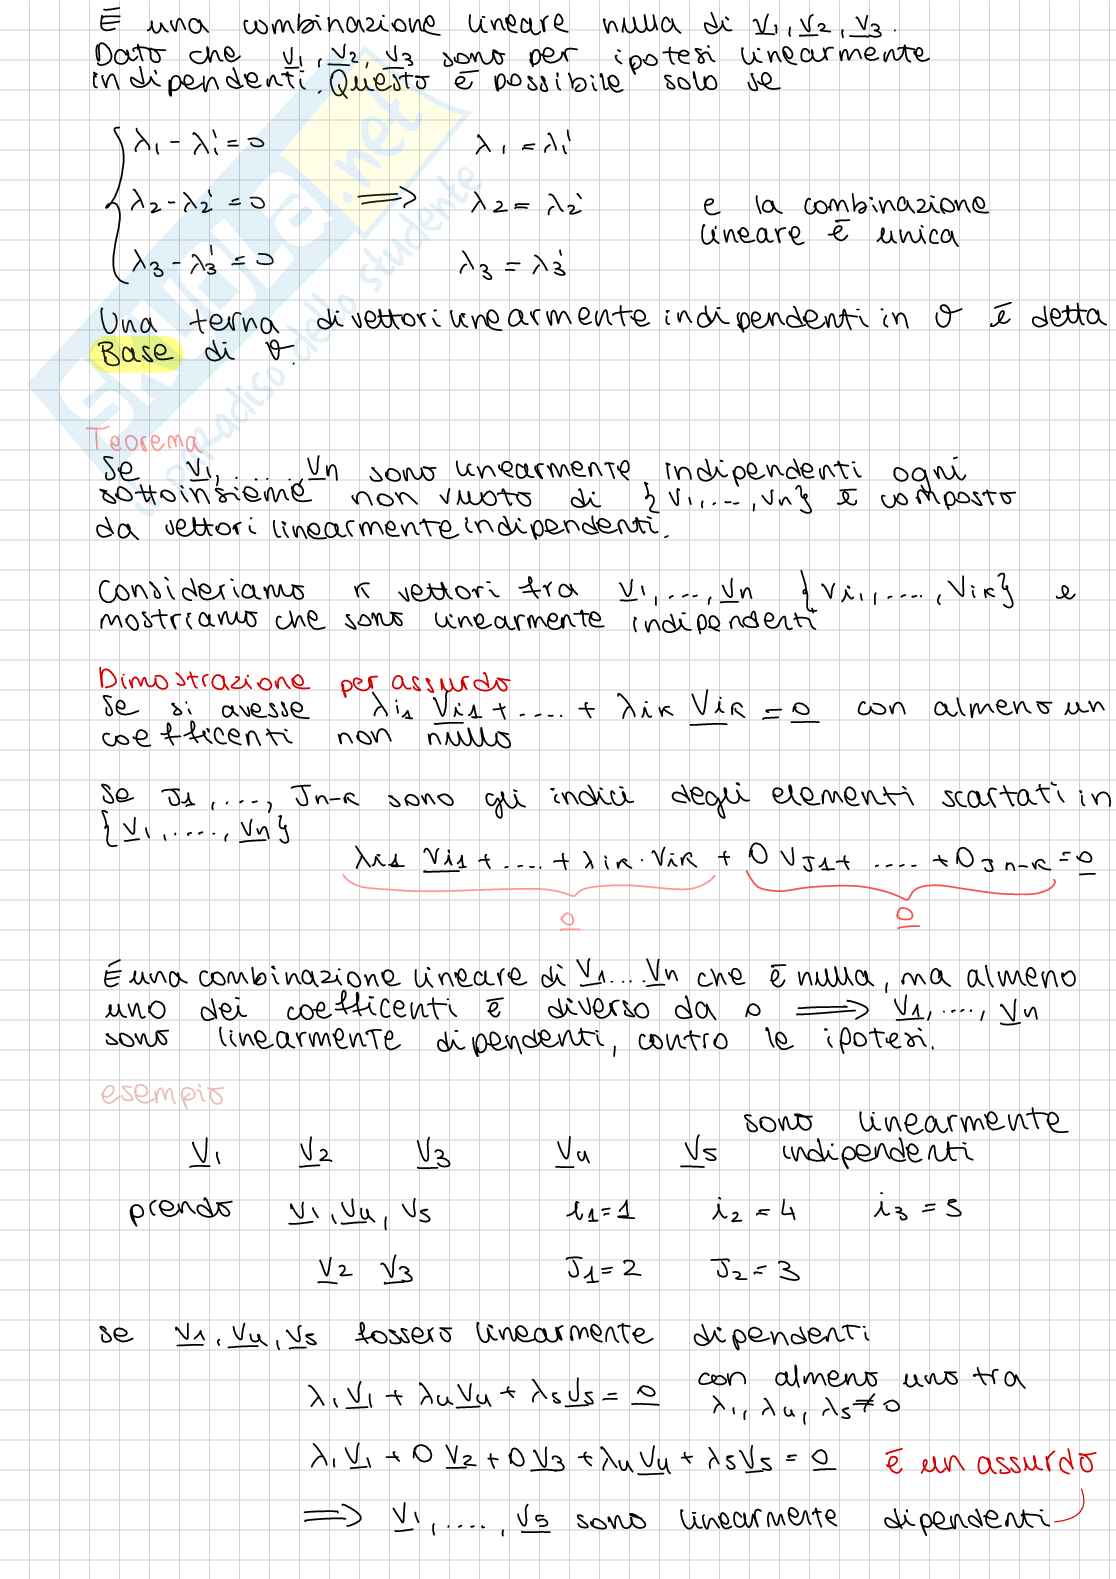 È una combinazione lineare nulla di v1, v2, v3.
Dato che v1, v2, v3 sono per ipotesi linearmente
indipendenti. Questo è possibile solo se
λ1 - λ1' = 0 λ1 = λ1'
λ2 - λ2' = 0 ⟹ λ2 = λ2' e la combinazione
lineare è unica
λ3 - λ3' = 0 λ3 = λ3'
Una terna di vettori linearmente indipendenti in ϑ è detta
Base di ϑ.
Teorema
Se v1, ...., vn sono linearmente indipendenti ogni
sottoinsieme non vuoto di {v1, ..., vn} è composto
da vettori linearmente indipendenti.
Consideriamo k vettori tra v1, ..., vn {vi1, ...., vik} e
mostriamo che sono linearmente indipendenti
Dimostrazione per assurdo
Se si avesse λi1 vi1 + .... + λik vik = 0 con almeno un
coefficenti non nullo
Se J1, ...., Jn-k sono gli indici degli elementi scartati in
{v1, ...., vn}
λi1 vi1 + .... + λik · vik + 0 vJ1 + .... + 0Jn-k = 0
0 0
È una combinazione lineare di v1 .... vn che è nulla, ma almeno
uno dei coefficenti è diverso da 0 ⟹ v1, ...., vn
sono linearmente dipendenti, contro le ipotesi.
esempio
sono linearmente
v1 v2 v3 v4 v5 indipendenti
prendo v1, v4, v5 i1 = 1 i2 = 4 i3 = 5
v2 v3 J1 = 2 J2 = 3
se v1, v4, v5 fossero linearmente dipendenti
λ1 v1 + λ4 v4 + λ5 v5 = 0 con almeno uno tra
λ1, λ4, λ5 ≠ 0
λ1 v1 + 0 v2 + 0 v3 + λ4 v4 + λ5 v5 = 0 è un assurdo
⟹ v1, ...., v5 sono linearmente dipendenti
SKUOLA.net
paradiso dello studente